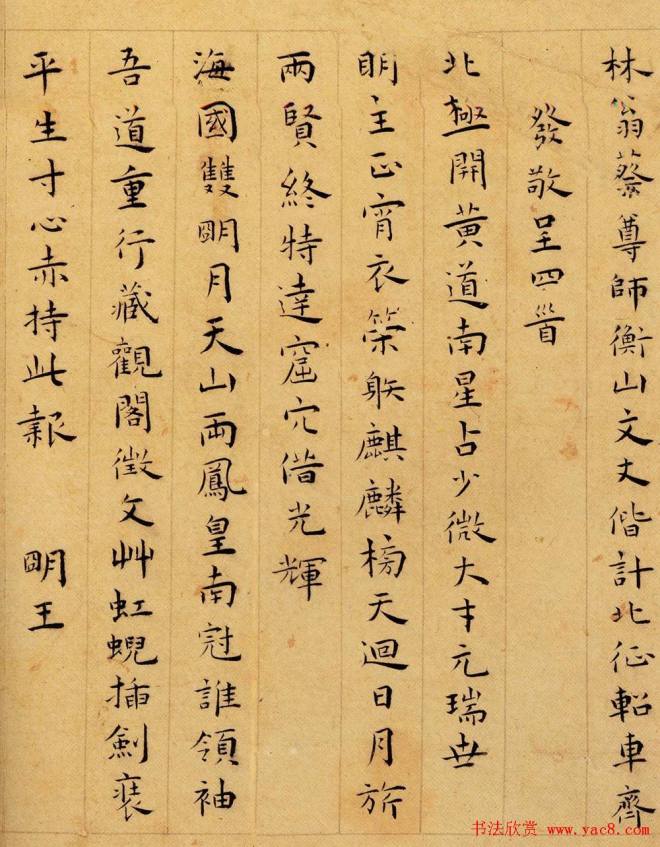 林翁蔡尊師衡山文丈偕計北征軺車齊
發敬呈四首
北極開黃道南星占少微大才元瑞世
明主正宵衣榮躲麒麟榜天迴日月旂
兩賢終特達窟穴借光輝
海國雙明月天山兩鳳皇南冠誰領袖
吾道重行藏觀閣徵文艸虹蜺插劍裝
平生寸心赤持此報 明王
书法欣赏 www.yac8.com